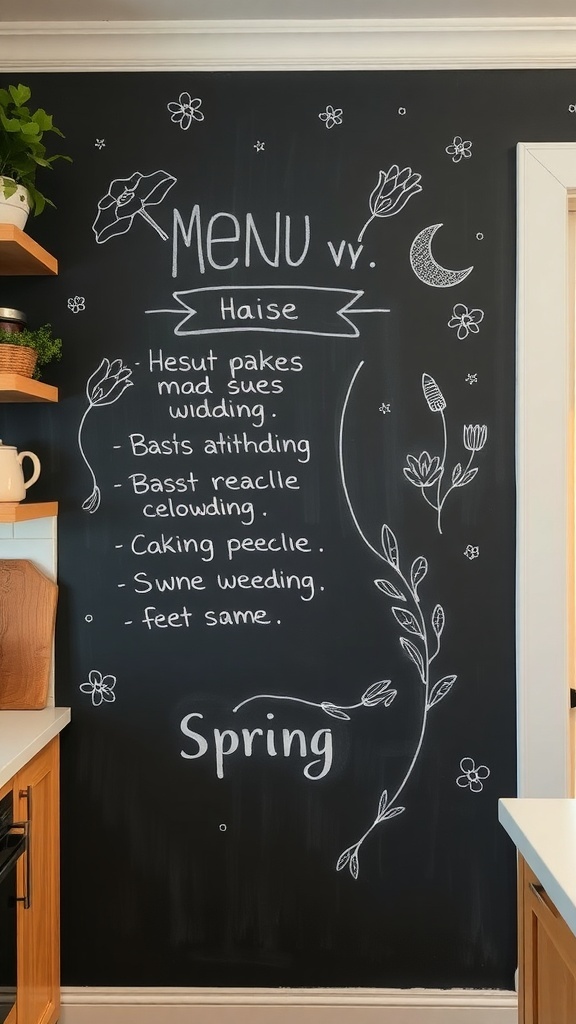 MENU vy.
Haise
- Hesut pakes
mad sues
widding.
- Basts atithding
- Basst reaclle
celowding.
- Caking peeclie.
- Swne weeding.
- feet same.
Spring